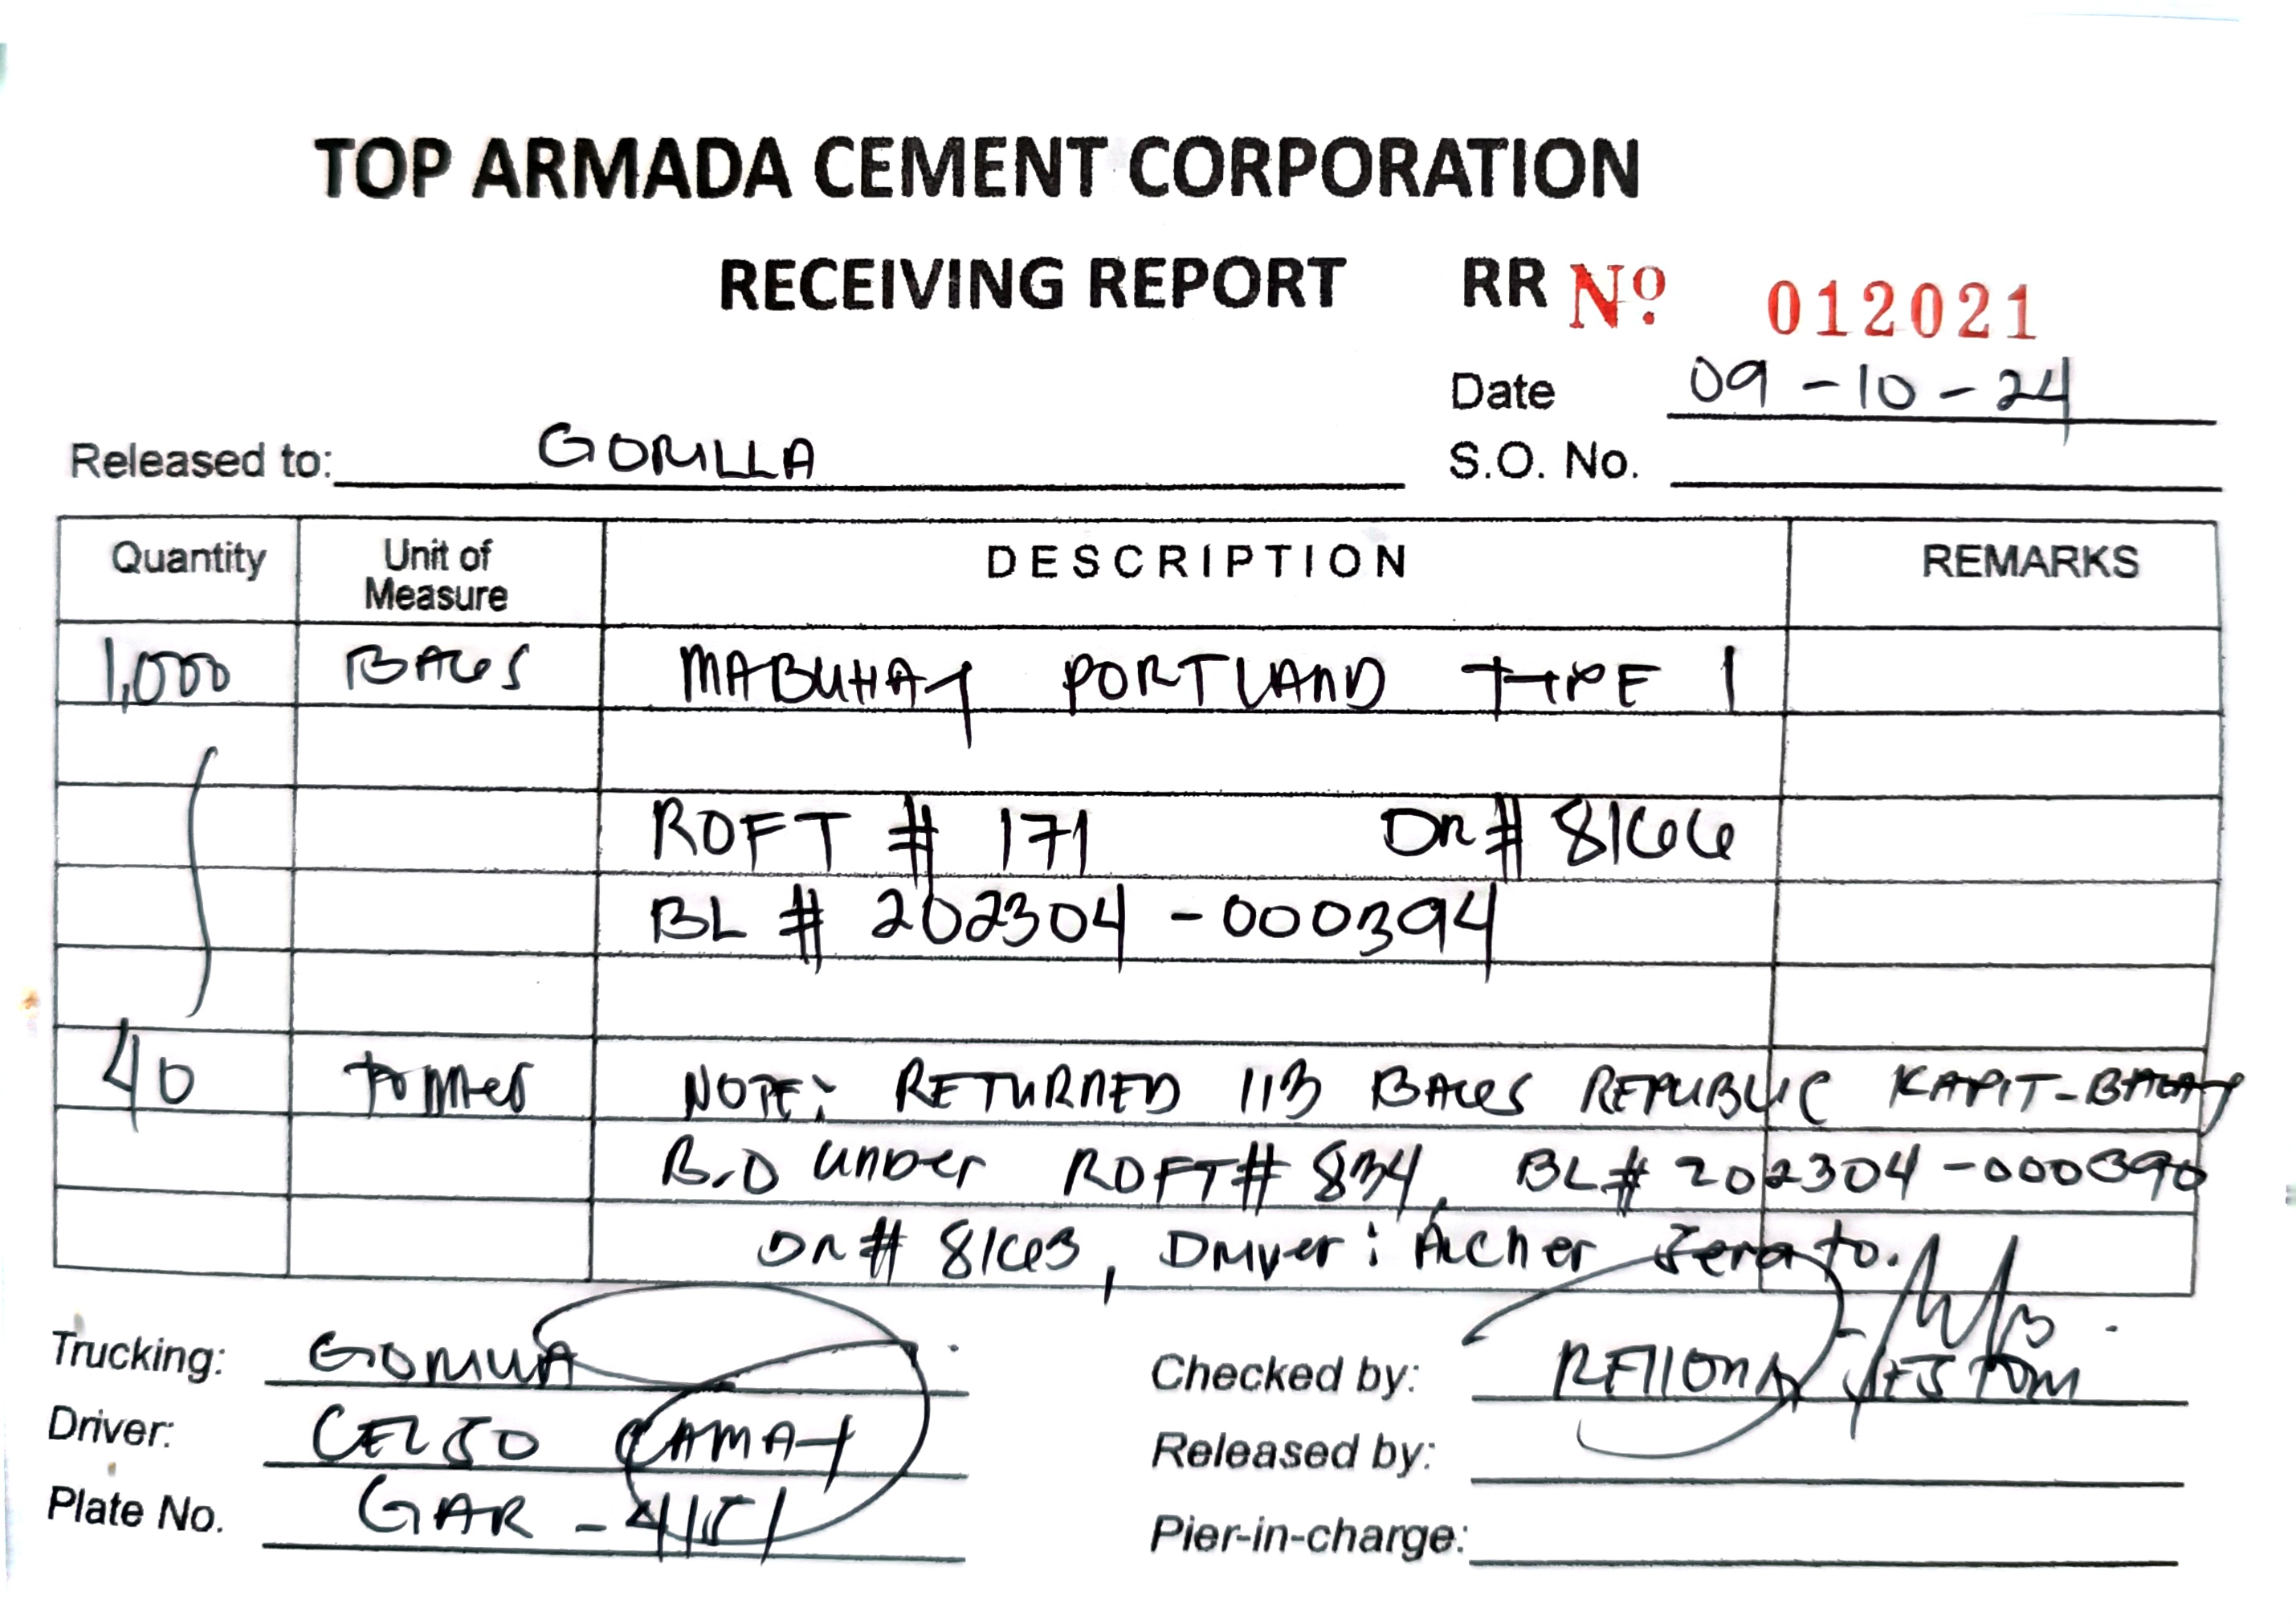 TOP ARMADA CEMENT CORPORATION
RECEIVING REPORT RR Nº 012021
Date 09-10-24
Released to: GORILLA S.O. No.
Quantity Unit of Measure DESCRIPTION REMARKS
1,000 BAGS MABUHAY PORTLAND TYPE 1
ROFT # 171 DR# 8166
BL # 202304-000394
40 tonner NOTE: RETURNED 113 BAGS REPUBLIC KAPIT-BAHAY
B.O under ROFT# 834, BL# 202304-000390
DR# 8163, Driver: Archer Jerato.
Trucking: GORILLA Checked by:
Driver: CELSO CAMAY Released by:
Plate No. GAR - Pier-in-charge: